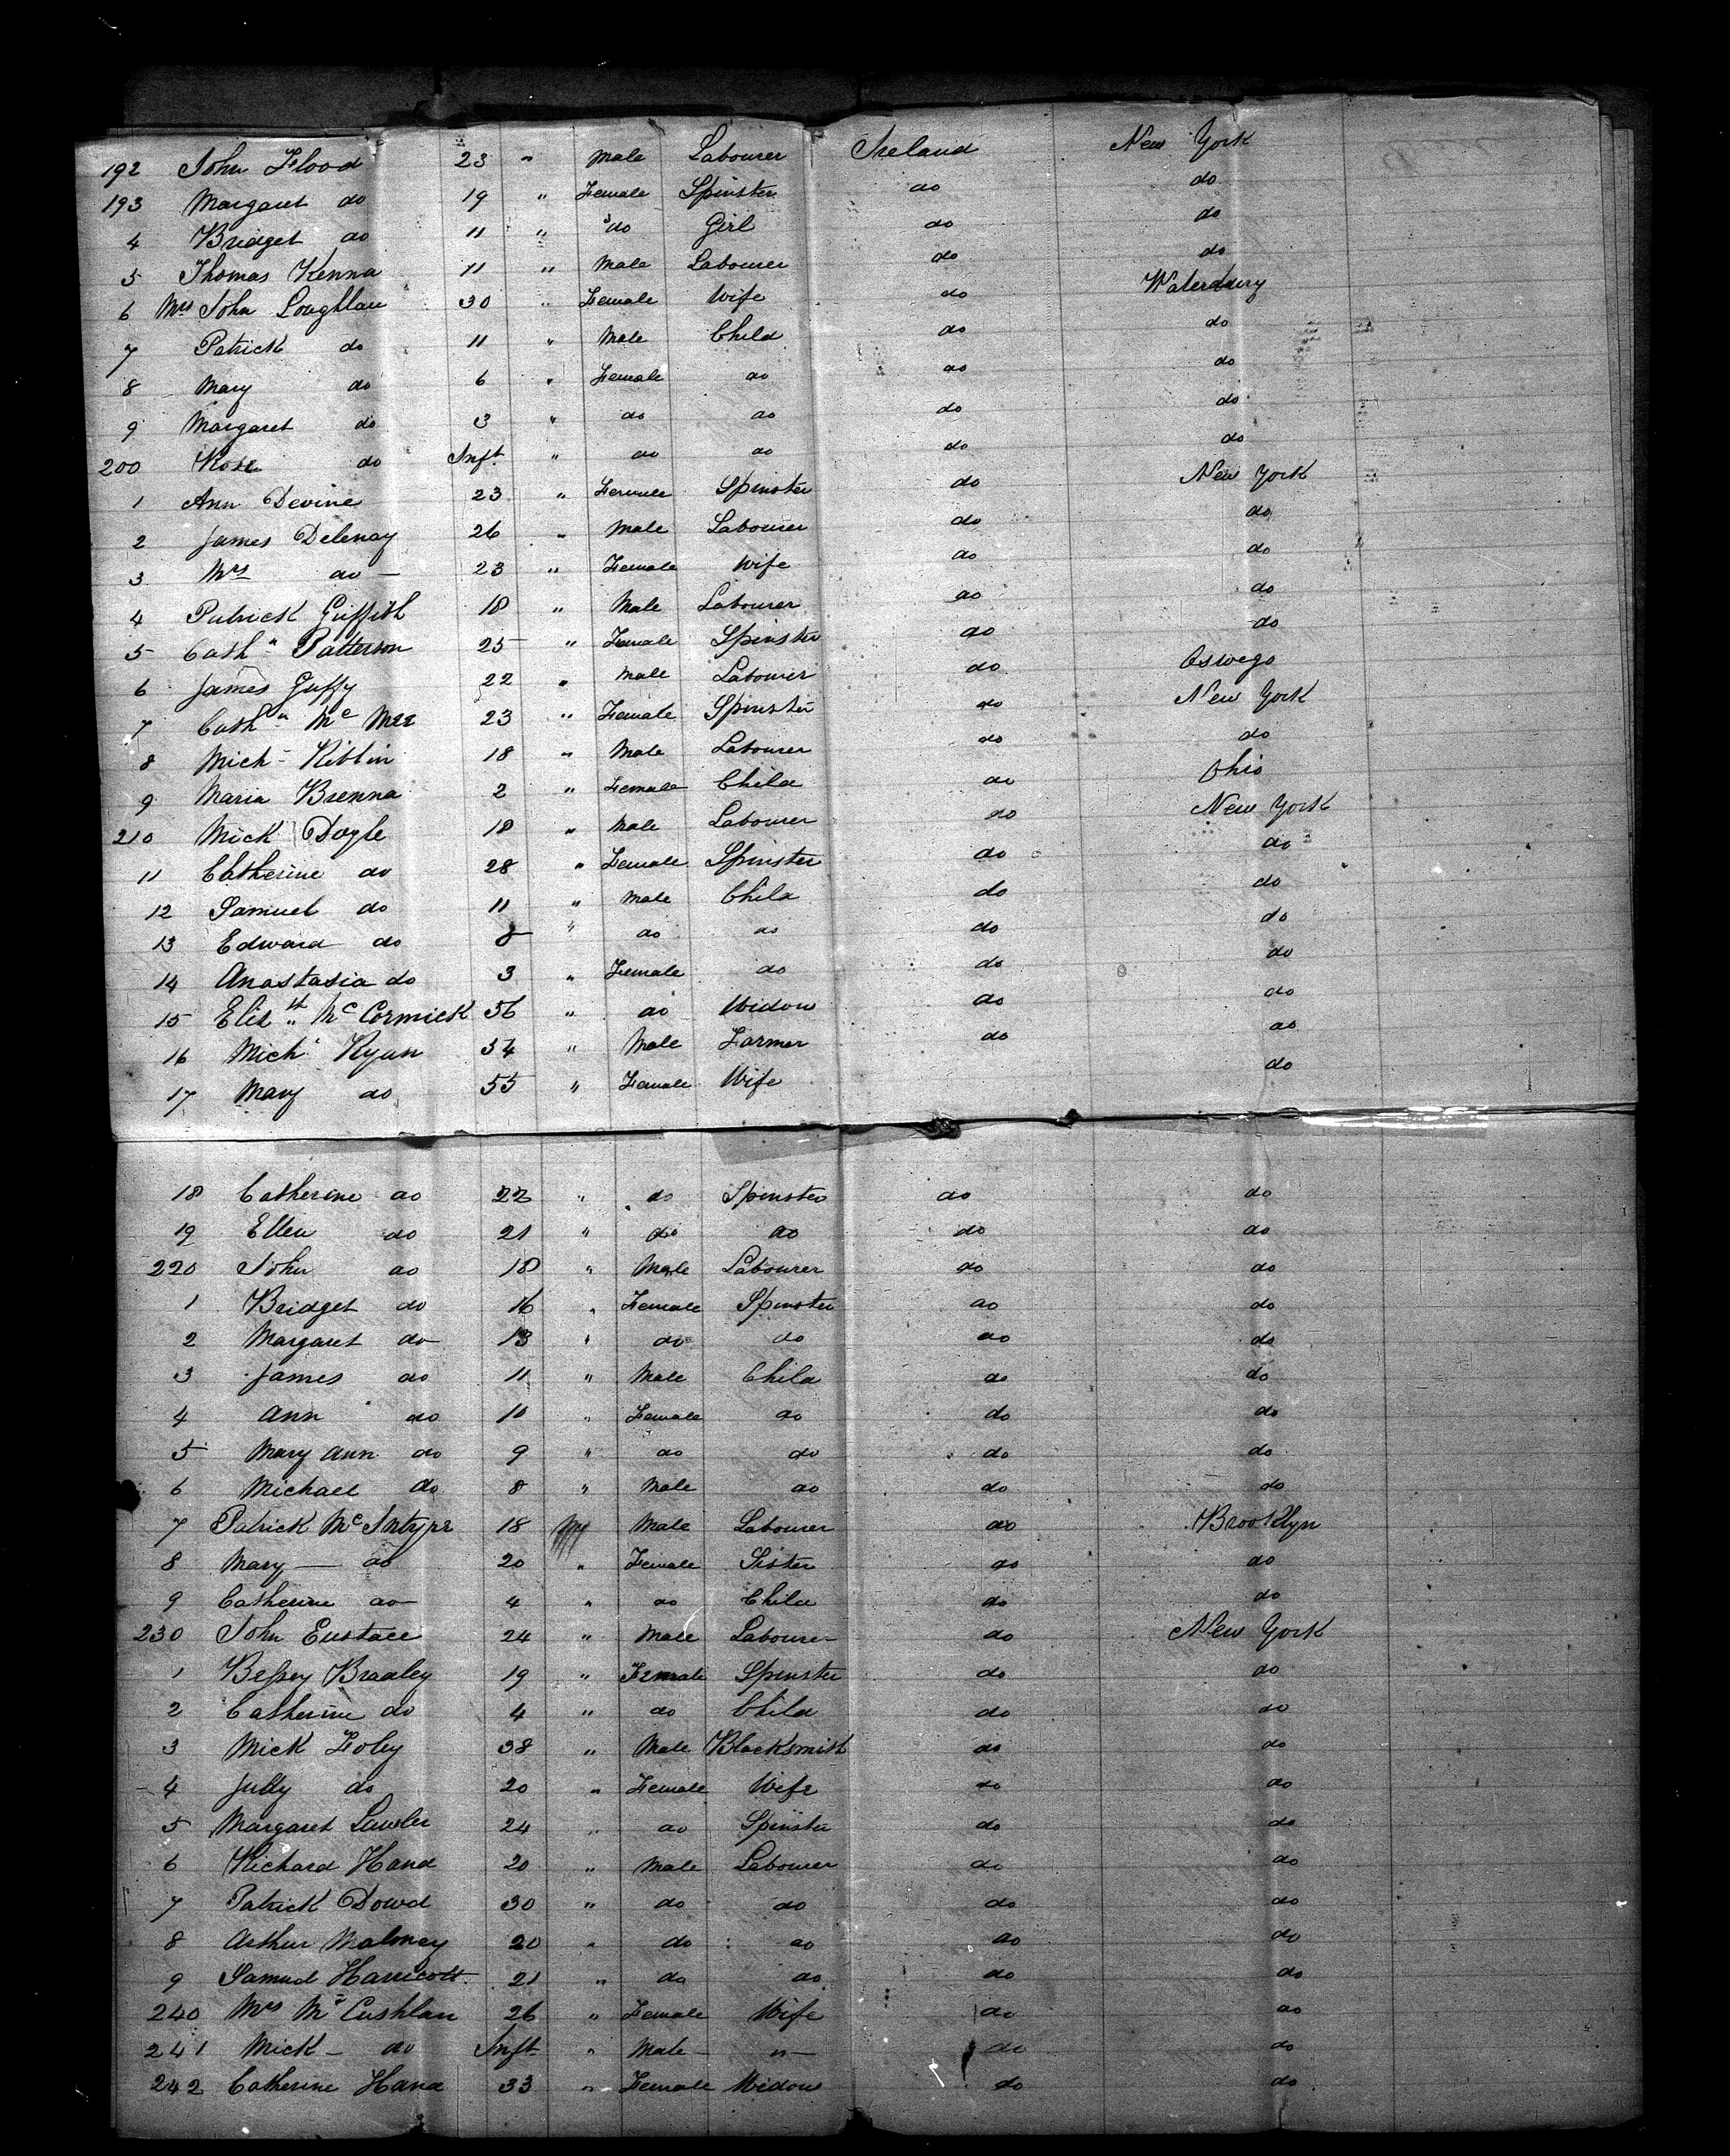 192 John Flood 23 " Male Labourer Ireland New York
193 Margaret do 19 " Female Spinster do do
4 Bridget do 11 " do Girl do do
5 Thomas Kenna 11 " Male Labourer do do
6 Mrs John Loughlan 30 " Female Wife do Waterbury
7 Patrick do 11 " Male Child do do
8 Mary do 6 " Female do do do
9 Margaret do 3 " do do do do
200 Rose do Inft " do do do do
1 Ann Devine 23 " Female Spinster do New York
2 James Delenay 26 " Male Labourer do do
3 Mrs do 23 " Female Wife do do
4 Patrick Griffith 18 " Male Labourer do do
5 Cathn Patterson 25 " Female Spinster do do
6 James Guffy 22 " Male Labourer do Oswego
7 Cathn Mc Mee 23 " Female Spinster do New York
8 Mich Kibbin 18 " Male Labourer do do
9 Maria Brenna 2 " Female Child do Ohio
210 Mick Doyle 18 " Male Labourer do New York
11 Catherine do 28 " Female Spinster do do
12 Samuel do 11 " Male Child do do
13 Edward do 8 " do do do do
14 Anastasia do 3 " Female do do do
15 Elizth McCormick 56 " do Widow do do
16 Michl Ryan 54 " Male Farmer do do
17 Mary do 55 " Female Wife do
18 Catherine do 22 " do Spinster do do
19 Ellen do 21 " do do do do
220 John do 18 " Male Labourer do do
1 Bridget do 16 " Female Spinster do do
2 Margaret do 13 " do do do do
3 James do 11 " Male Child do do
4 Ann do 10 " Female do do do
5 Mary Ann do 9 " do do do do
6 Michael do 8 " Male do do do
7 Patrick McIntyre 18 Male Labourer do Brooklyn
8 Mary do 20 " Female Sister do do
9 Catherine do 4 " do Child do do
230 John Eustace 24 " Male Labourer do New York
1 Bessey Bradley 19 " Female Spinster do do
2 Catherine do 4 " do Child do do
3 Mick Foley 38 " Male Blacksmith do do
4 Judy do 20 " Female Wife do do
5 Margaret Lawler 24 " do Spinster do do
6 Richard Hand 20 " Male Labourer do do
7 Patrick Dowd 30 " do do do do
8 Arthur Maloney 20 " do do do do
9 Samuel Harricott 21 " do do do do
240 Mrs McCushlan 26 " Female Wife do do
241 Mick do Inft " Male " do do
242 Catherine Hand 33 " Female Widow do do